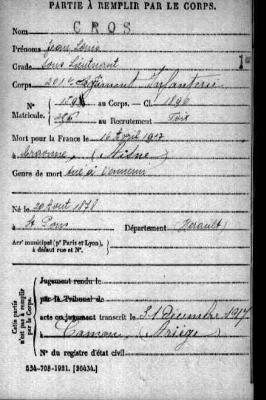 PARTIE À REMPLIR PAR LE CORPS.
Nom CROS
Prénoms Jean Louis
Grade Sous Lieutenant
Corps 201e Régiment Infanterie
N° au Corps. — Cl. 1896
Matricule. au Recrutement Foix
Mort pour la France le 16 Avril 1917
à Craonne, (Aisne)
Genre de mort tué à l'ennemi
Né le 20 Août 1878
à St Pons Département Hérault
Arrt municipal (pr Paris et Lyon),
à défaut rue et N°.
Cette partie n'est pas à remplir par le Corps.
Jugement rendu le
par le Tribunal de
acte ou jugement transcrit le 31 Décembre 1917
à Camon, (Ariège)
N° du registre d'état civil
534-708-1921. [26434.]